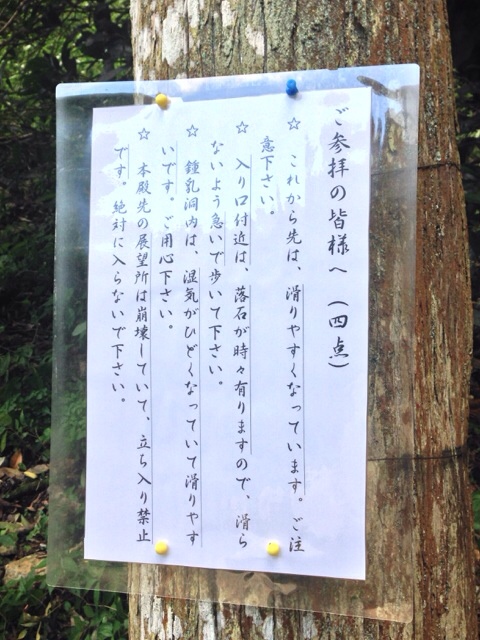 ご参拝の皆様へ（四点）
☆　これから先は、滑りやすくなっています。ご注
意下さい。
☆　入り口付近は、落石が時々有りますので、滑ら
ないよう急いで歩いて下さい。
☆　鍾乳洞内は、湿気がひどくなっていて滑りやす
いです。ご用心下さい。
☆　本殿先の展望所は崩壊していて、立ち入り禁止
です。絶対に入らないで下さい。